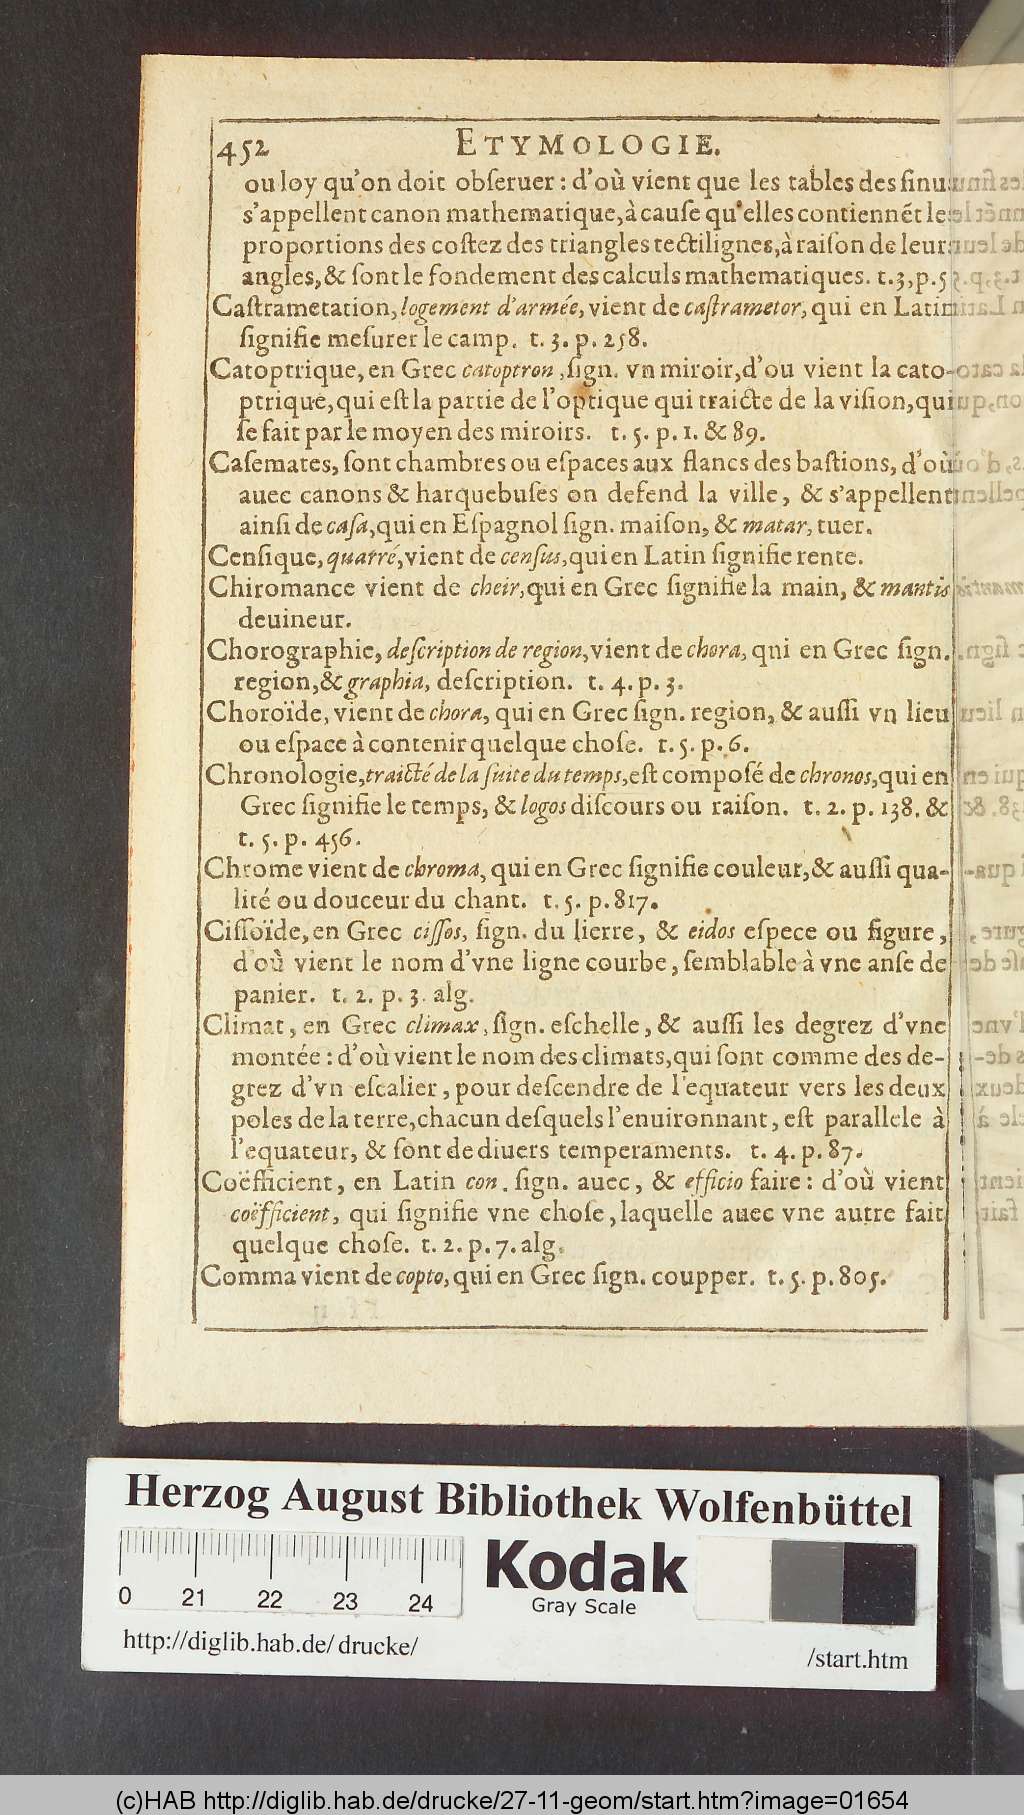 452 ETYMOLOGIE.
ou loy qu'on doit obſeruer : d'où vient que les tables des ſinus
s'appellent canon mathematique, à cauſe qu'elles contiennẽt les
proportions des coſtez des triangles rectilignes, à raiſon de leurs
angles, & ſont le fondement des calculs mathematiques. t. 3, p. 5
Caſtrametation, logement d'armée, vient de caſtrametor, qui en Latin
ſignifie meſurer le camp. t. 3. p. 258.
Catoptrique, en Grec catoptron, ſign. vn miroir, d'ou vient la cato-
ptrique, qui eſt la partie de l'optique qui traicte de la viſion, qui
ſe fait par le moyen des miroirs. t. 5. p. 1. & 89.
Caſemates, ſont chambres ou eſpaces aux flancs des baſtions, d'où
auec canons & harquebuſes on defend la ville, & s'appellent
ainſi de caſa, qui en Eſpagnol ſign. maiſon, & matar, tuer.
Cenſique, quarré, vient de cenſus, qui en Latin ſignifie rente.
Chiromance vient de cheir, qui en Grec ſignifie la main, & mantis
deuineur.
Chorographie, deſcription de region, vient de chora, qui en Grec ſign.
region, & graphia, deſcription. t. 4. p. 3.
Choroïde, vient de chora, qui en Grec ſign. region, & auſſi vn lieu
ou eſpace à contenir quelque choſe. t. 5. p. 6.
Chronologie, traicté de la ſuite du temps, eſt compoſé de chronos, qui en
Grec ſignifie le temps, & logos diſcours ou raiſon. t. 2. p. 138. &
t. 5. p. 456.
Chrome vient de chroma, qui en Grec ſignifie couleur, & auſſi qua-
lité ou douceur du chant. t. 5. p. 817.
Ciſſoïde, en Grec ciſſos, ſign. du lierre, & eidos eſpece ou figure,
d'où vient le nom d'vne ligne courbe, ſemblable à vne anſe de
panier. t. 2. p. 3. alg.
Climat, en Grec climax, ſign. eſchelle, & auſſi les degrez d'vne
montée : d'où vient le nom des climats, qui ſont comme des de-
grez d'vn eſcalier, pour deſcendre de l'equateur vers les deux
poles de la terre, chacun deſquels l'enuironnant, eſt parallele à
l'equateur, & ſont de diuers temperaments. t. 4. p. 87.
Coëfficient, en Latin con. ſign. auec, & efficio faire : d'où vient
coëfficient, qui ſignifie vne choſe, laquelle auec vne autre fait
quelque choſe. t. 2. p. 7. alg.
Comma vient de copto, qui en Grec ſign. coupper. t. 5. p. 805.
Herzog August Bibliothek Wolfenbüttel
0 21 22 23 24
Kodak
Gray Scale
http://diglib.hab.de/drucke/
/start.htm
(c)HAB http://diglib.hab.de/drucke/27-11-geom/start.htm?image=01654